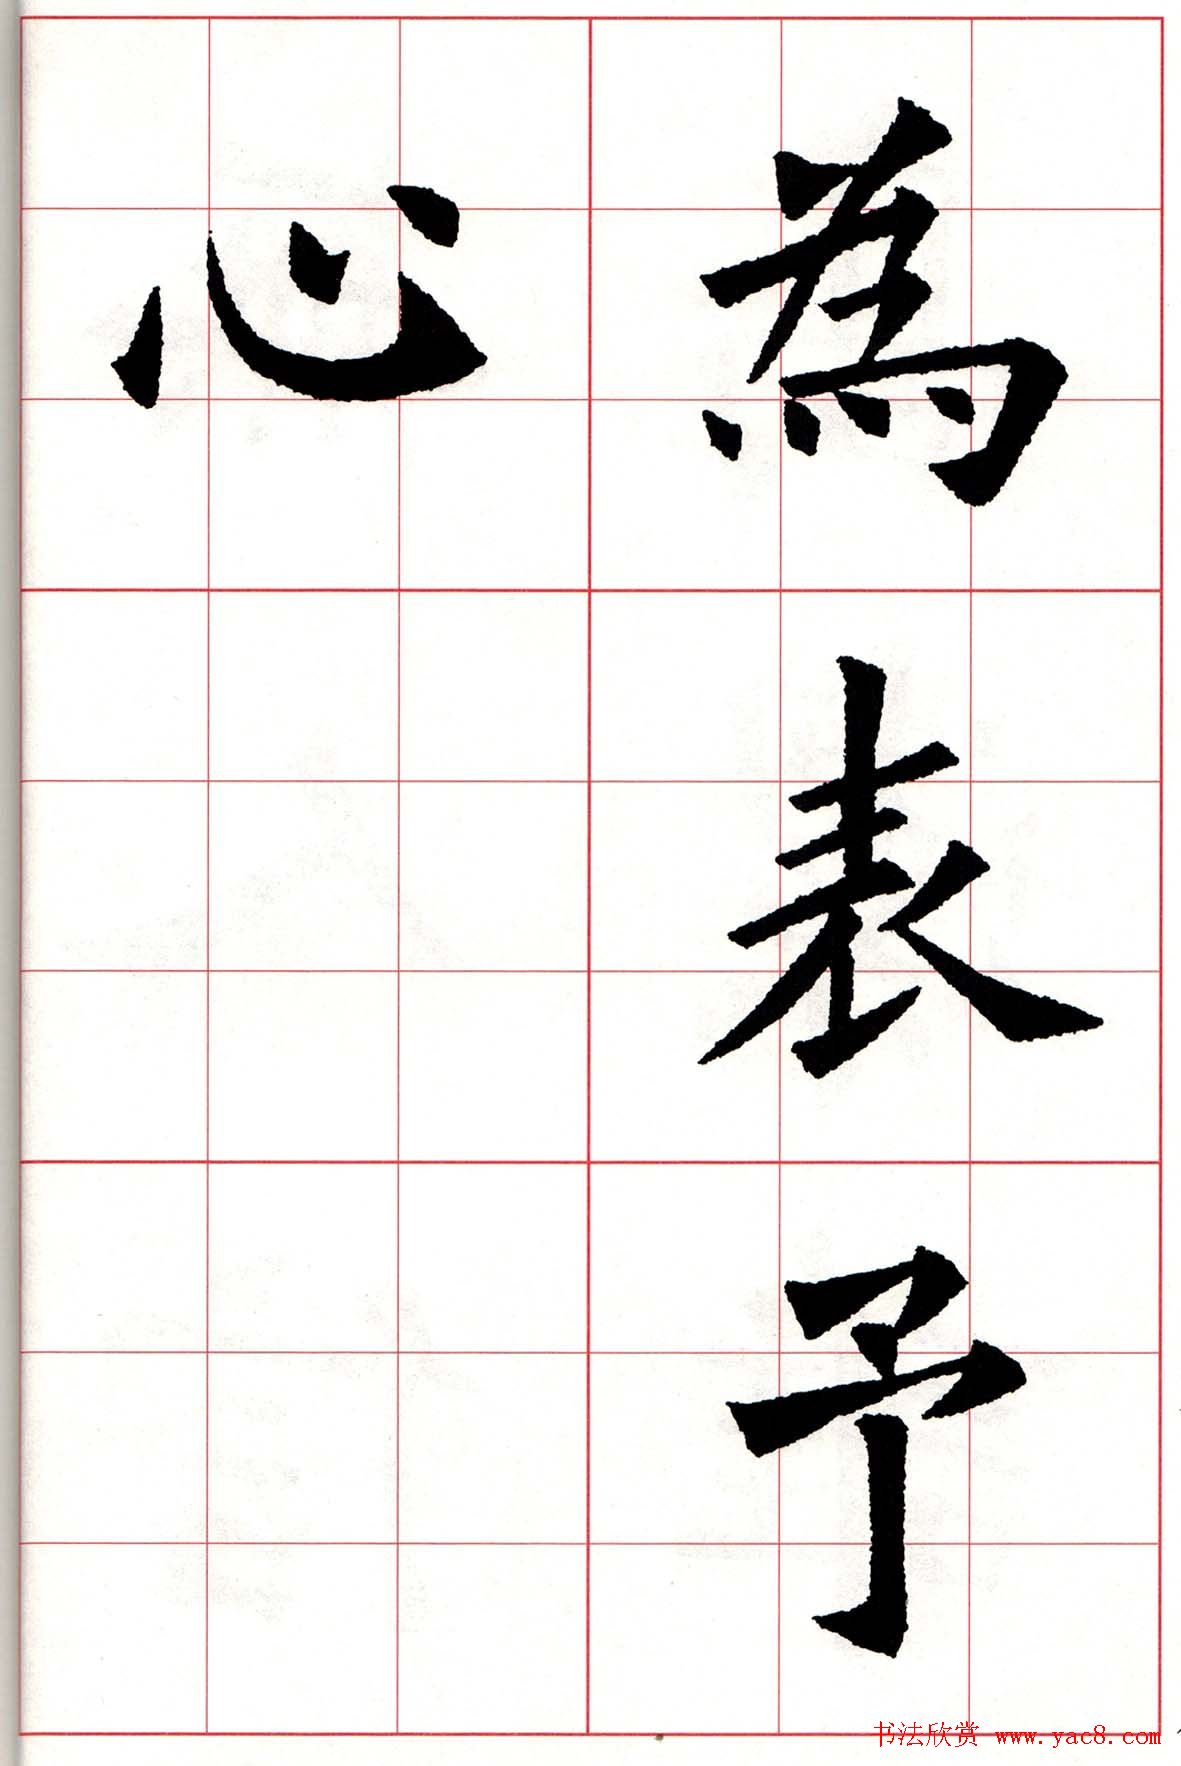 為表予
心
书法欣赏 www.yac8.com